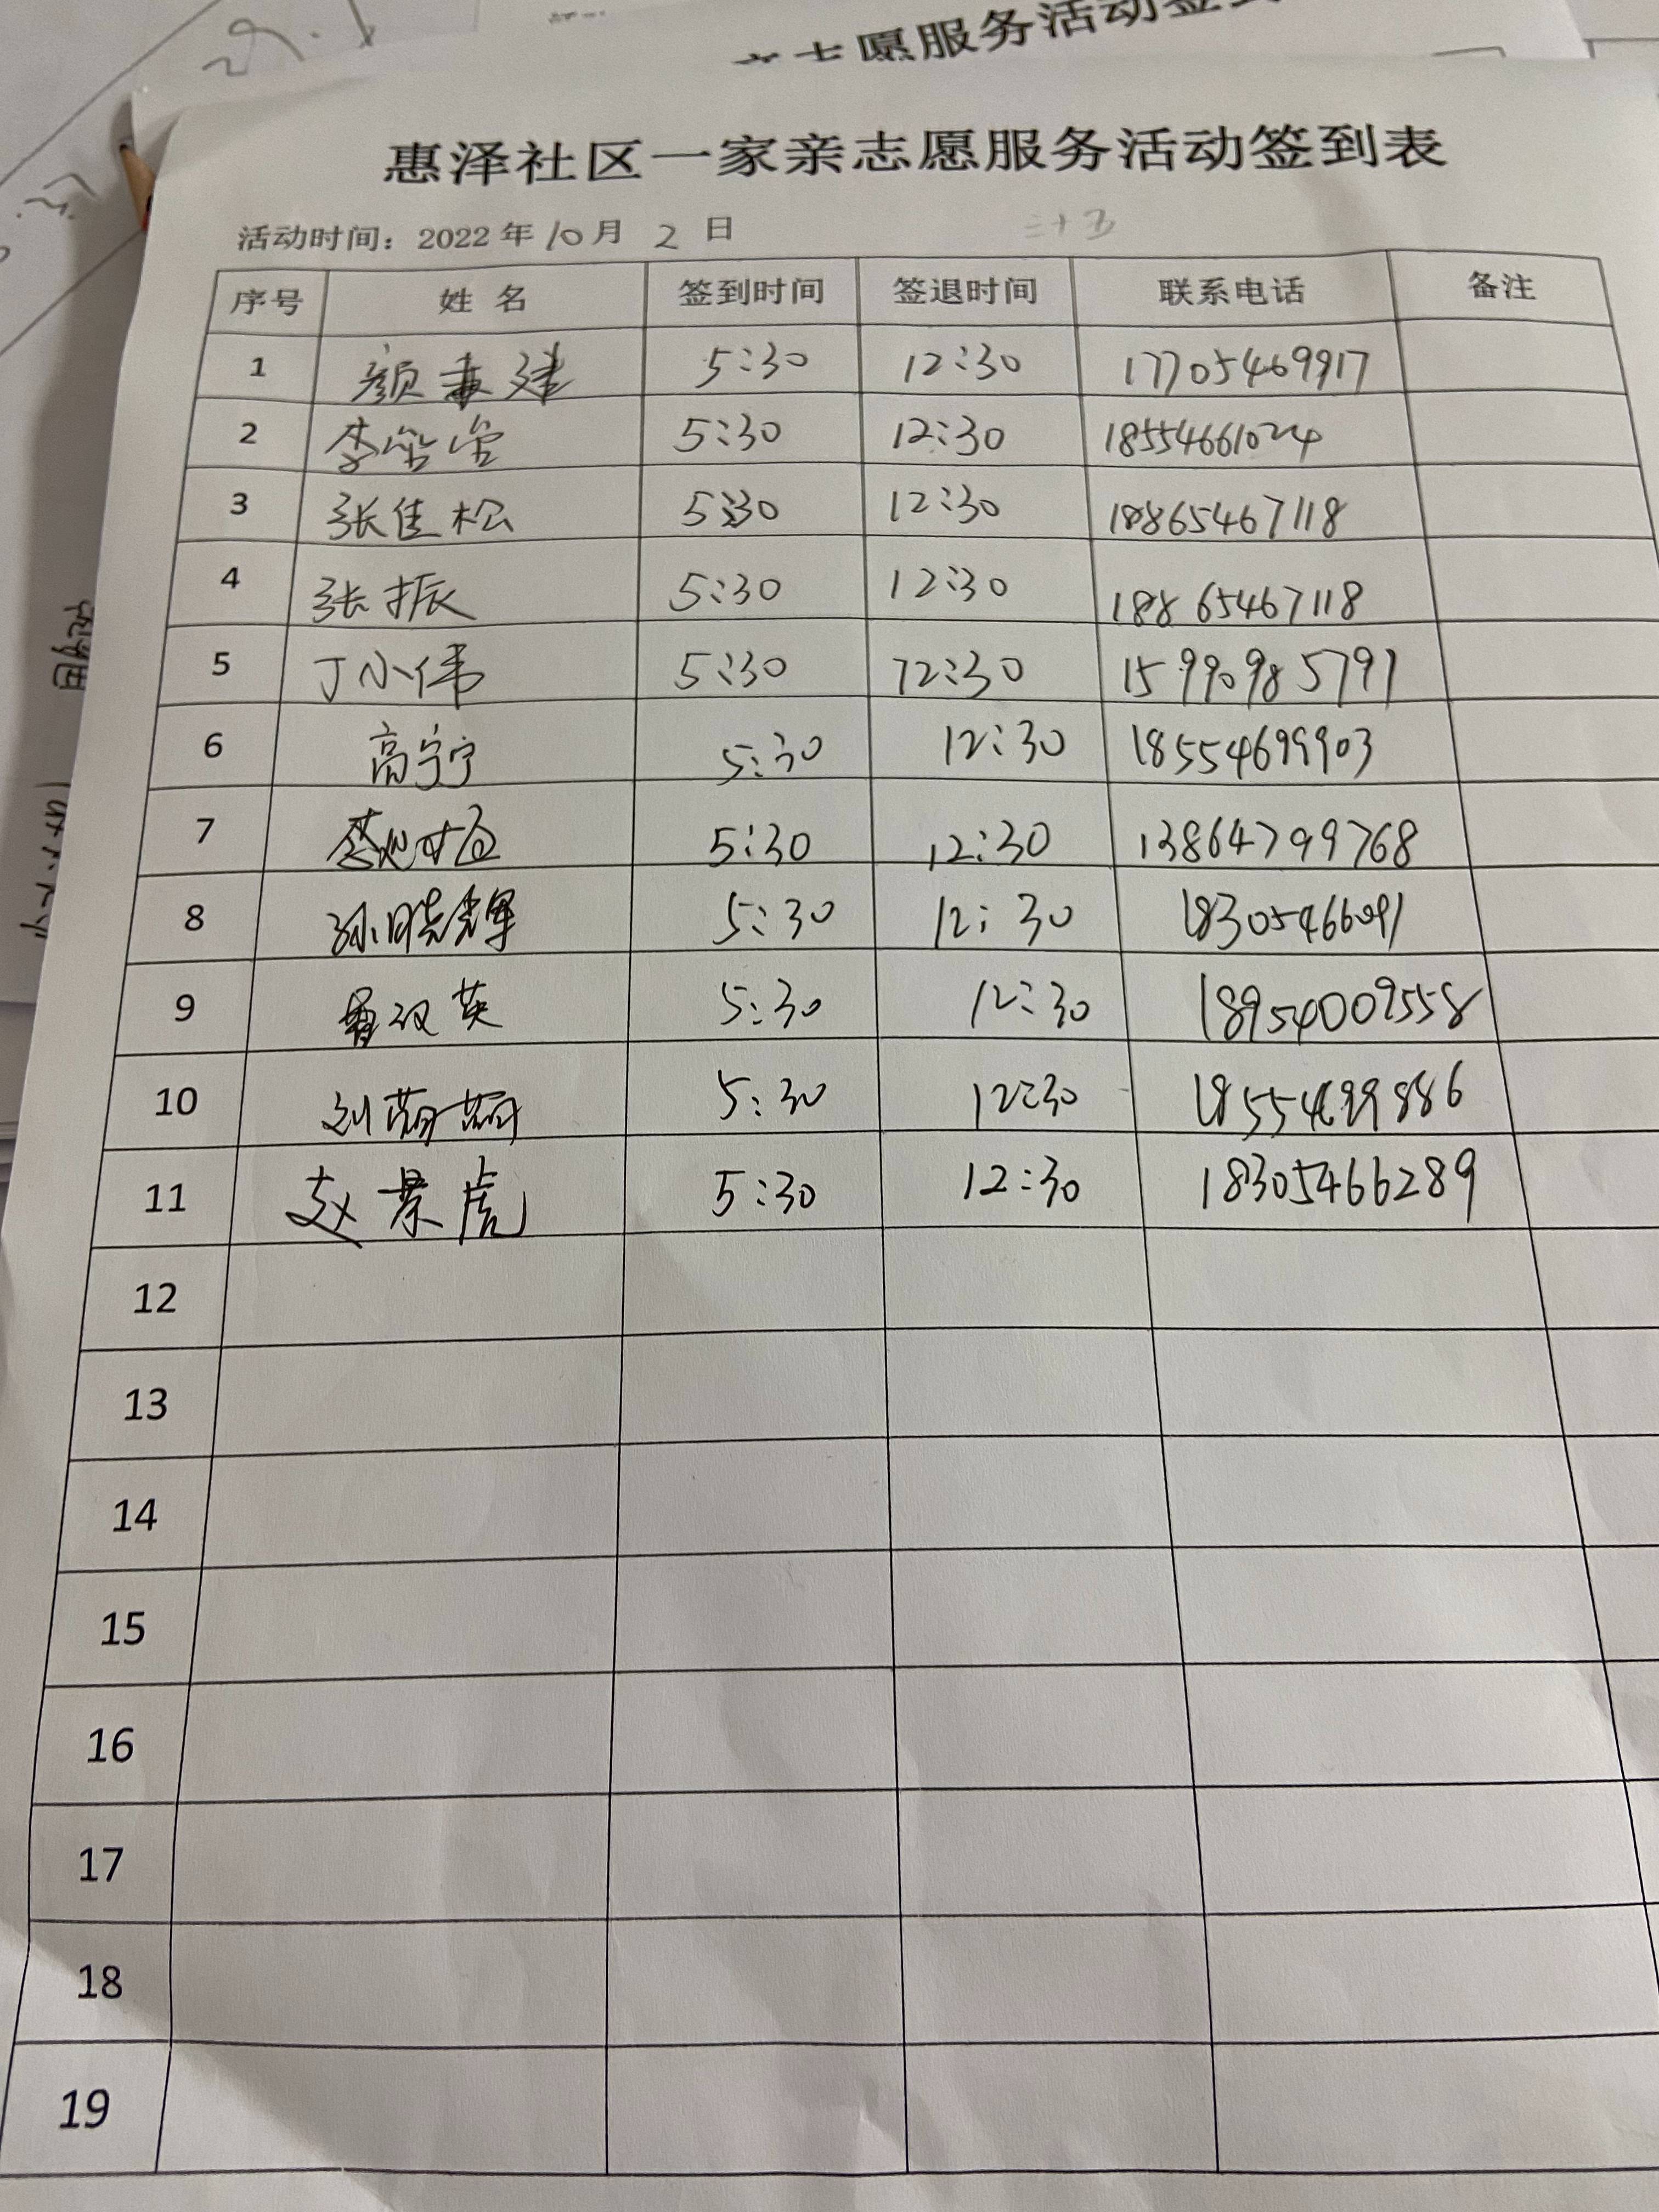 志愿服务活动签到
惠泽社区一家亲志愿服务活动签到表
活动时间：2022年10月2日 三十五
序号 姓名 签到时间 签退时间 联系电话 备注
1 颜 建 5:30 12:30 17705469917
2 李 5:30 12:30 18554661024
3 张佳松 5:30 12:30 18865467118
4 张振 5:30 12:30 18865467118
5 丁小伟 5:30 12:30 15990985791
6 高宁宁 5:30 12:30 18554699903
7 5:30 12:30 13864799768
8 孙晓辉 5:30 12:30 18305466091
9 曹汉英 5:30 12:30 18954009558
10 刘萌萌 5:30 12:30 18554699886
11 赵景虎 5:30 12:30 18305466289
12
13
14
15
16
17
18
19